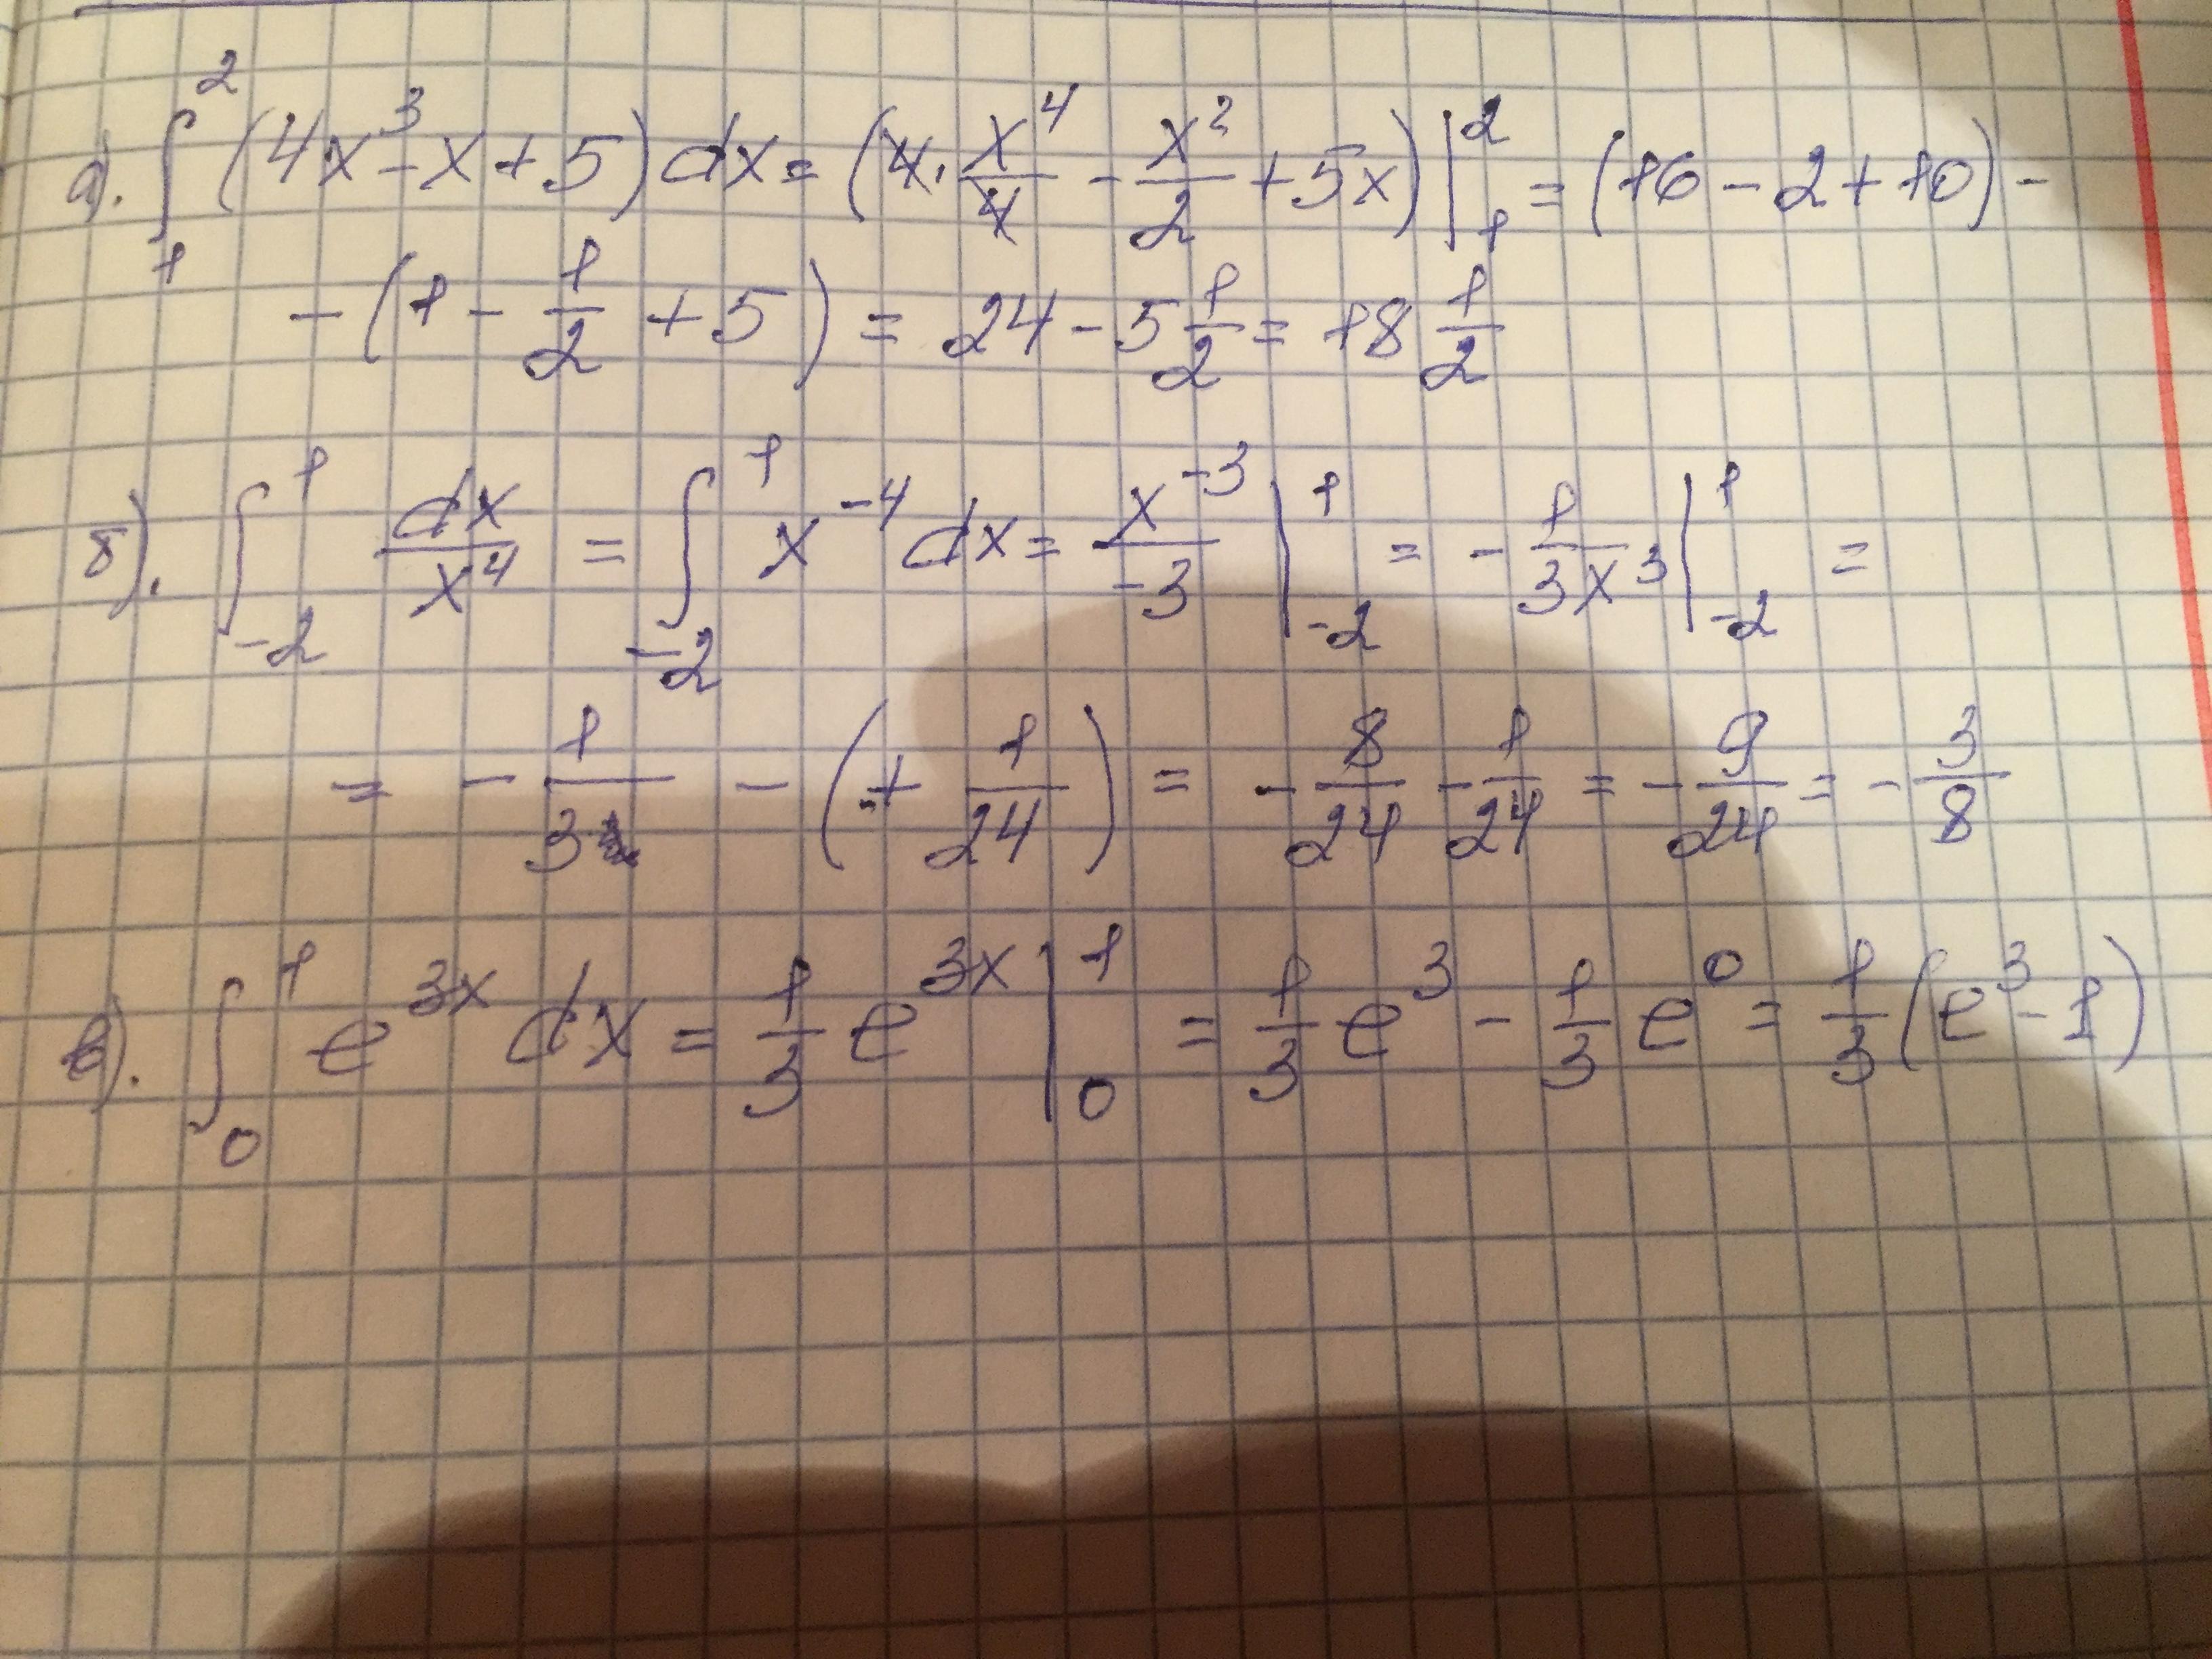 а). ∫₁² (4x³ - x + 5) dx = (4 · x⁴/4 - x²/2 + 5x) |₁² = (16 - 2 + 10) -
- (1 - 1/2 + 5) = 24 - 5 1/2 = 18 1/2
б). ∫₋₂¹ dx/x⁴ = ∫₋₂¹ x⁻⁴ dx = x⁻³/-3 |₋₂¹ = - 1/3x³ |₋₂¹ =
= - 1/3 - (+ 1/24) = - 8/24 - 1/24 = - 9/24 = - 3/8
в). ∫₀¹ e³ˣ dx = 1/3 e³ˣ |₀¹ = 1/3 e³ - 1/3 e⁰ = 1/3 (e³ - 1)